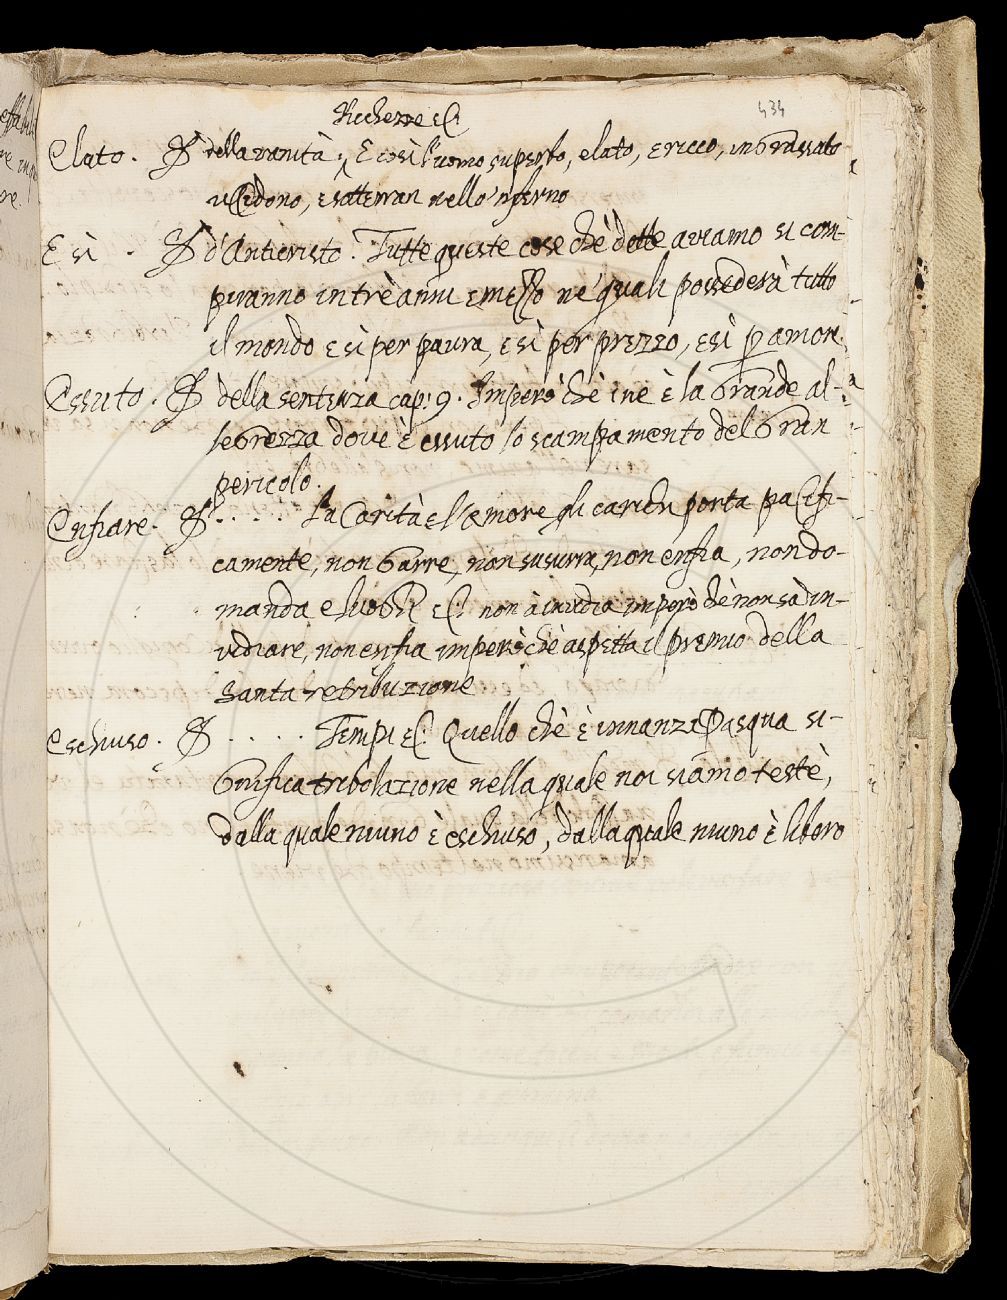 434
Ricchezze &c.
Elato. della vanità: E così l'uomo superbo, elato, e ricco, ingrassato
uccidono, e satterran nello 'nferno
E sì. d'Anticristo. Tutte queste cose chè dette aviamo si com-
piranno in trè anni e mezzo ne' quali possederà tutto
il mondo e sì per paura, e sì per prezzo, e sì p amore.
Essuto. della sentenza cap: 9. Imperò chè ine è la grande al-
legrezza dove è essuto lo scampamento del gran
pericolo.
Enfiare. . . . . La Carità e l'amore gli carichi porta pacifi-
camente, non garre, non susurra, non enfia, non do-
manda e luoghi &c. non à invidia imperò chè non sà in-
vidiare, non enfia imperò chè aspetta il premio della
santa retribuzione
Eschiuso. . . . . . Tempi &c. Quello chè è innanzi Pasqua si-
gnifica tribolazione nella quale noi siamo testè,
dalla quale niuno è eschiuso, dalla quale niuno è libero